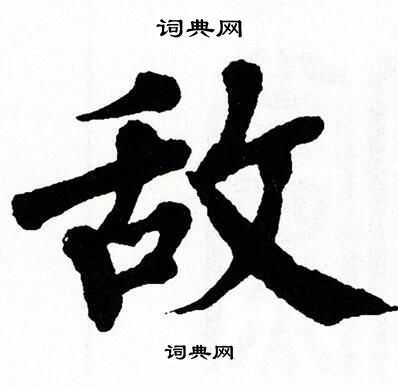 词典网
敌
词典网